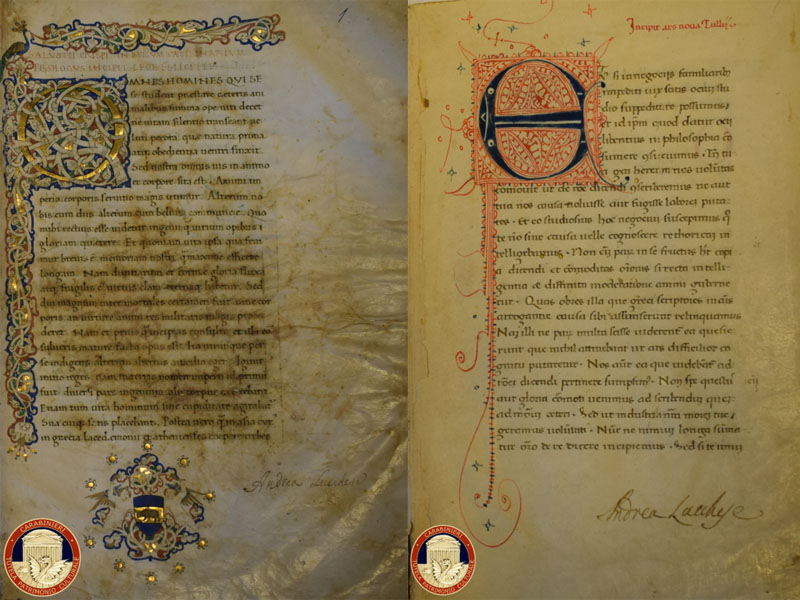 1
OMNES HOMINES QUI SE
se student prestare ceteris ani
malibus summa ope niti decet
ne vitam silentio transeant ue
luti pecora que natura prona
atq; obedientia ventri finxit
Sed nostra omnis uis in animo
et corpore sita est. Animi im
perio corporis seruitio magis utimur. Alterum no
bis cum diis alterum cum beluis commune est. Quo
mihi rectius esse uidetur ingenii q uirium opibus
gloriam querere. Et quoniam uita ipsa qua frui
mur breuis est memoriam nostri q maxime efficere
longam. Nam diuitiarum et forme gloria fluxa
atq; fragilis est uirtus clara eternaq; habetur. Sed
diu magnum inter mortales certamen fuit uine cor
poris an uirtute animi res militaris magis proce
deret. Nam et prius q incipias consulto et ubi co
sulueris mature facto opus est. Ita utrunque per
se indigens alterum alterius auxilio eget. Igitur
initio reges nam in terris nomen imperii id primum
fuit diuersi pars ingenium alii corpus exercebant
Etiam tum uita hominum sine cupiditate agitabatur
Sua cuiq; satis placebant. Postea uero q in asia cyrus
in grecia Lacedemonii et athenienses cepere urbes
Andrea Lucchese
CARABINIERI
TUTELA PATRIMONIO CULTURALE
Incipit ars noua Tullii
Et si in negociis familiaribus
impediti uix satis ocium stu
dio suppeditare possumus
et id ipm quod datur ocii
libentius in philosophia co
sumere consueuimus. Tn tu
a gai herenni nos uoluntas
comouit ut de roe dicendi conscriberemus ne aut
tua nos causa noluisse aut fugisse laborem puta
res. Et eo studiosius hoc negocium suscepimus q
te no sine causa uelle cognoscere rhetoricam in
telligebamus. Non eni par in se fructus ht copi
a dicendi et comoditas orationis si recta intelli
gentia et diffinita moderatione animi guberne
tur. Quas obres illa que greci scriptores inanis
arrogantie causa sibi assumserunt reliquimus
Nam illi ne par multa scisse uiderentur ea conquisie
runt que nihil attinebant ut ars difficilior co
gnitu putaretur. Nos aut ea que uidebantur ad
roem dicendi pertinere sumpsimus. Non spe questus
aut gloria comoti uenimus ad scribendum quem
admodum ceteri. Sed ut industria nra morem tue
geremus uoluntati. Nunc ne nimium longa suma
tur oro de re dicere incipiemus. Sed si te unum
Andrea Lucchese
CARABINIERI
TUTELA PATRIMONIO CULTURALE